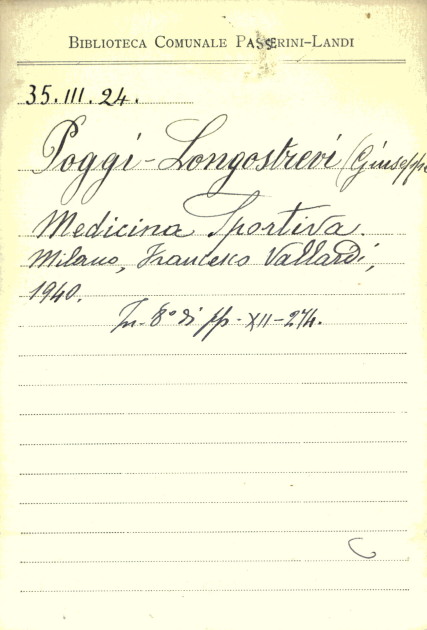 BIBLIOTECA COMUNALE PASSERINI-LANDI
35.III.24.
Poggi-Longostrevi (Giuseppe
Medicina Sportiva.
Milano, Francesco Vallardi,
1940.
In-8° di pp. XII-274.